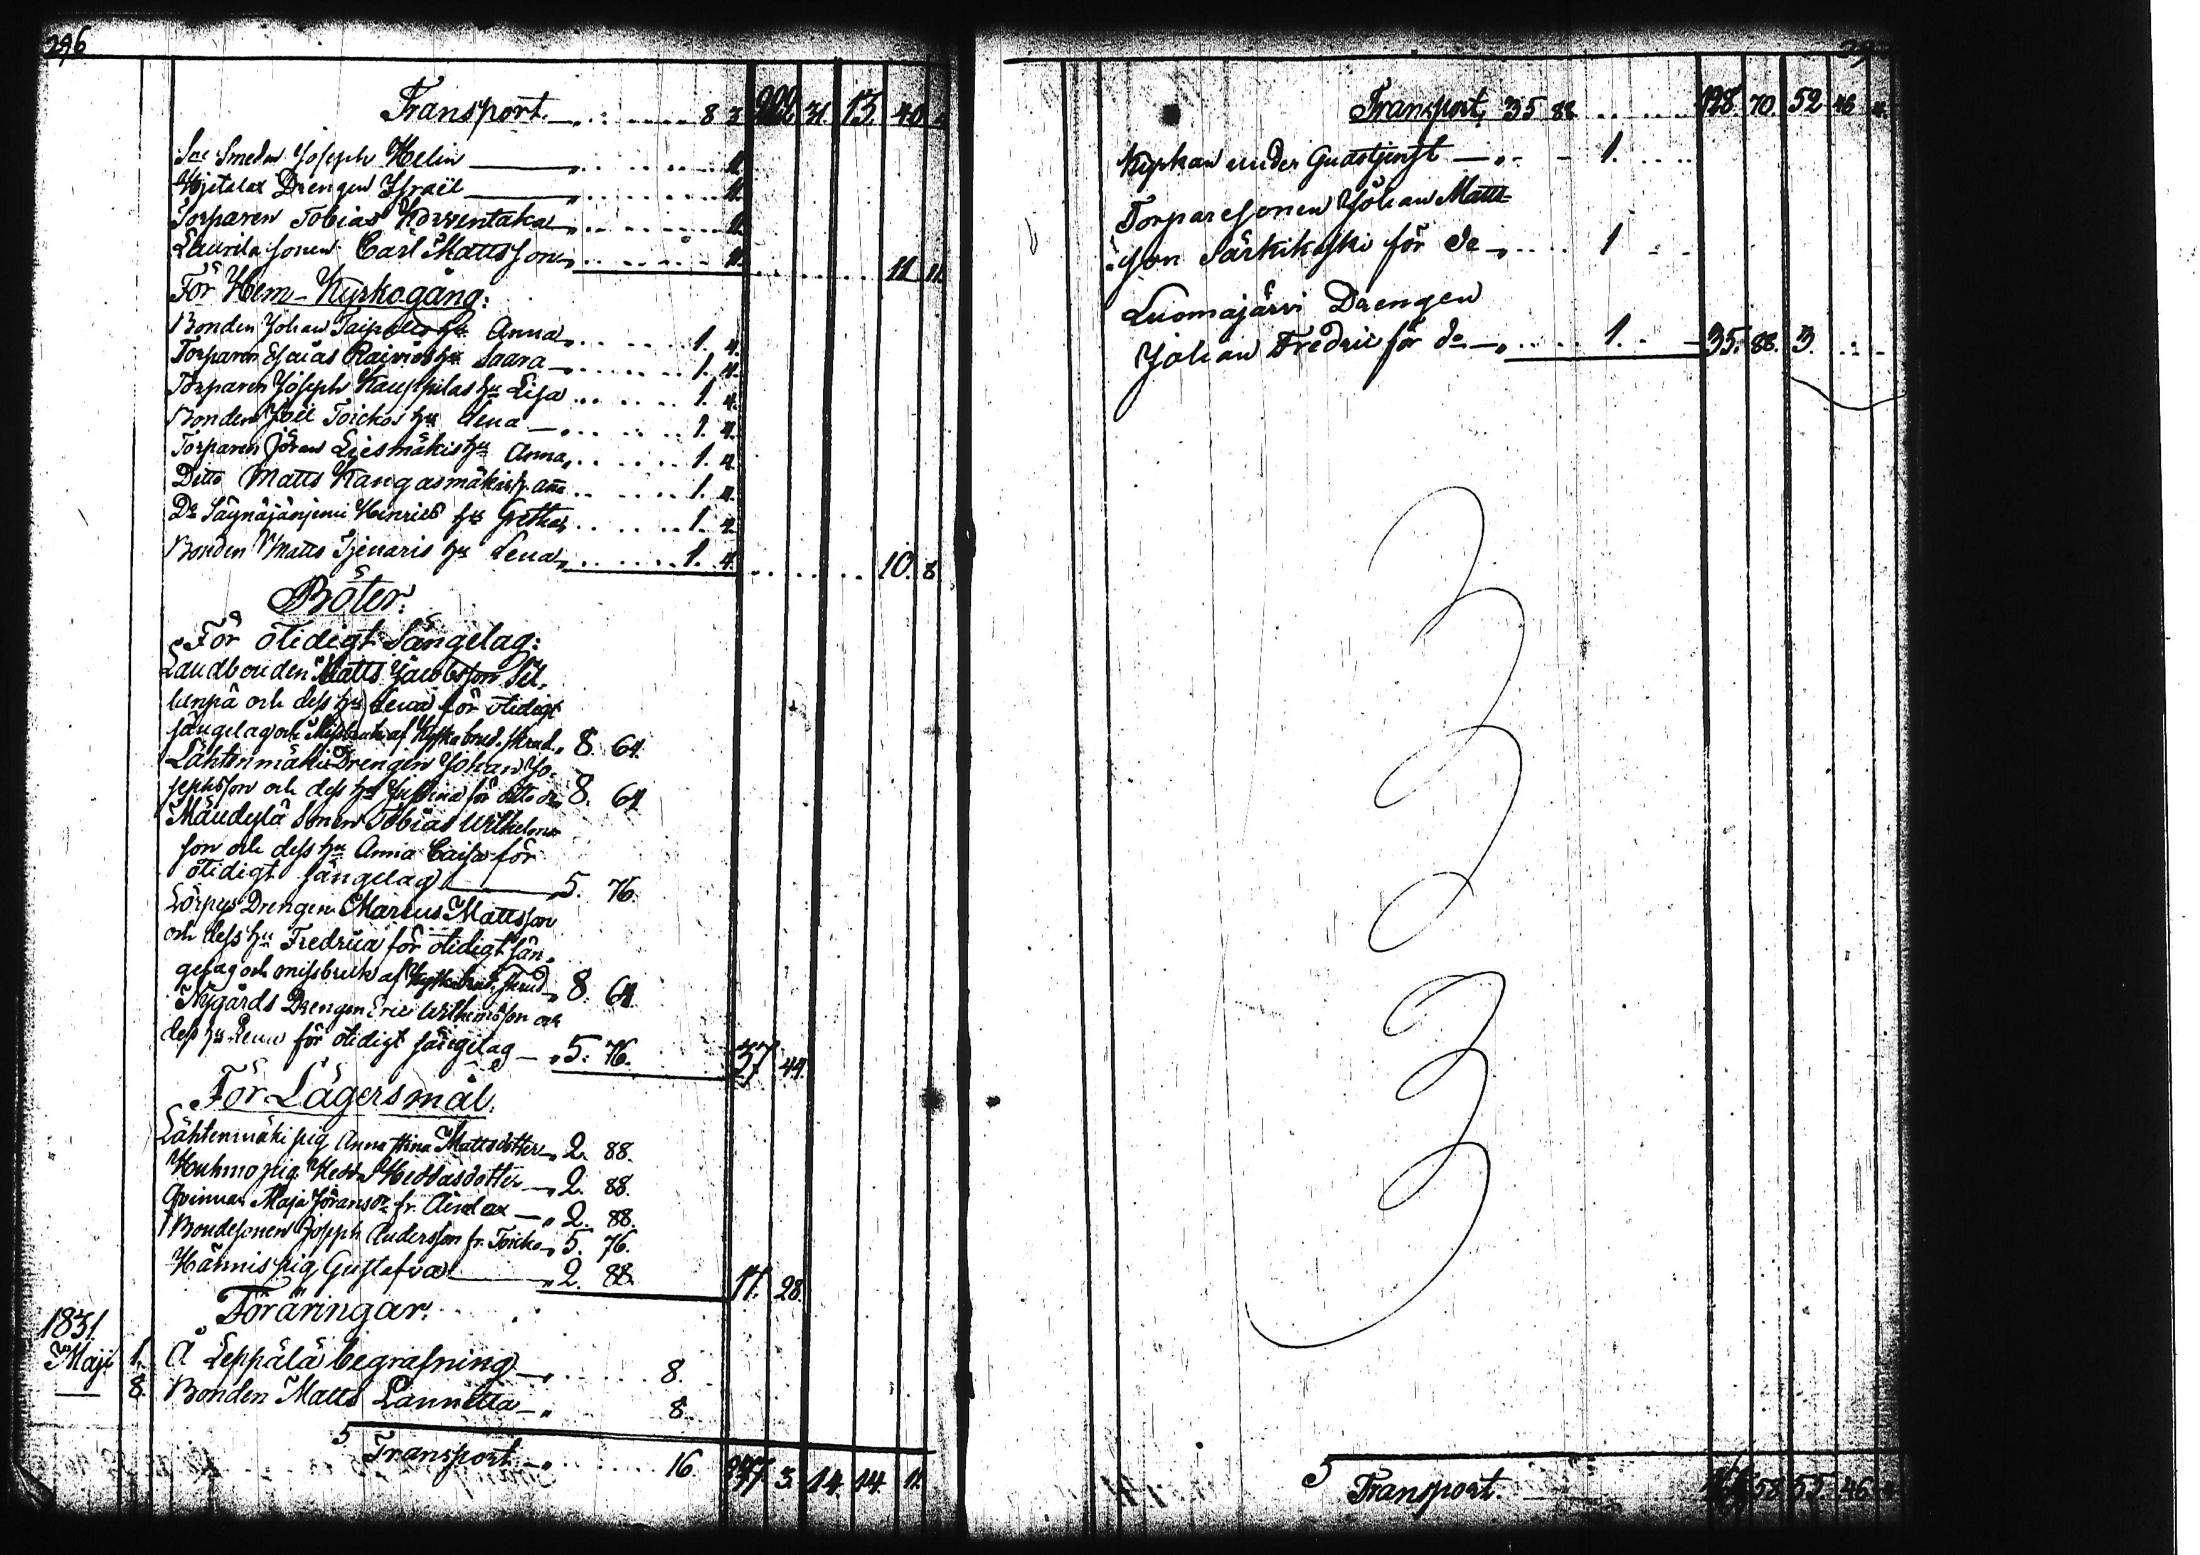 296
Transport. 8 3 292 31 13. 40.
Soc Smeden Joseph Helin 11.
Hjetalax Drengen Israël 11.
Torparen Tobias Korventaka 11.
Laurila sonen Carl Mattsson 11. 11 11.
För Hem-Kyrkogång:
Bonden Johan Taipales hu Anna 1. 4.
Torparen Esaias Rainios hu Saara 1. 4.
Torparen Joseph Kauppilas hu Lisa 1. 4.
Bonden Joel Toickos hu Lena 1. 4.
Torparen Jöran Liesmäkis hu Anna 1. 4.
Ditto Matts Kangasmäkis h. Aña 1. 4.
Do Säynäjänjemi Henrics hu Gretha 1. 4.
Bonden Matts Tjenaris hu Lena 1. 4. 10. 8
Böter:
För otidigt Sängelag:
Landbonden Matts Jacobsson Sil-
lanpä och dess hu Lena för otidigt
sängelag och Missbruk af Kyrko brud. skrud. 8. 64.
Lähtenmäki Drengen Johan Jo-
sephsson och dess hu Justina för ditto do 8. 64
Mäudylä Sonen Tobias Wilhelms-
son och dess hu Anna Caisa för
otidigt sängelag 5. 76.
Lörpys Drengen Marcus Mattsson
och dess hu Fredrica för otidigt sän-
gelag och missbruk af Kyrko brud. skrud 8. 64.
Nygårds Drengen Eric Wilhelmsson och
dess hu Lena för otidigt sängelag 5. 76. 37 44.
För Lägersmål.
Lähtenmäki pig. Anna Stina Mattsdotter 2. 88.
Kuhmo pig. Hedda Heddasdotter 2. 88.
Qvinnan Maja Jöransdr fr. Aindax 2. 88.
Bondesonen Joseph Andersson fr. Toicko 5. 76.
Hännis pig. Gustafva 2. 88. 17. 28.
Föräringar.
1831.
Maji 1. Å Leppälä begrafning 8.
8. Bonden Matts Lannetta 8
5 Transport. 16 347 3. 14. 14. 11.
Transport, 35 88 128. 70. 52 46
Kyrkan under Gudstjenst 1.
Torparesonen Johan Matts-
son Särkikoski för do 1
Luomajärvi Drengen
Johan Fredric för do 1. 35. 88. 3.
5 Transport. 58 55. 46